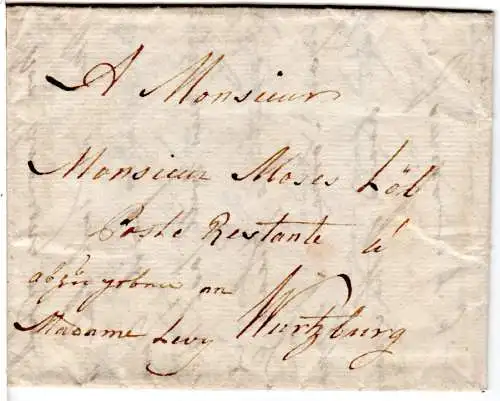 A Monsieur
Monsieur Moses Löb
Poste Restante à
abzugeben an
Madame Levy Wurtzburg